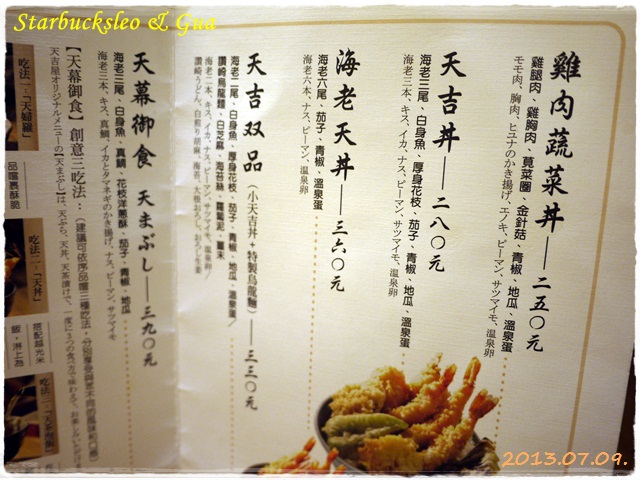 Starbucksleo & Gua
雞肉蔬菜丼——二五〇元
雞腿肉、雞胸肉、莧菜圈、金針菇、青椒、地瓜、溫泉蛋
モモ肉、胸肉、ヒユナのかき揚げ、エノキ、ピーマン、サツマイモ、温泉卵
天吉丼——二八〇元
海老三尾、白身魚、厚身花枝、茄子、青椒、地瓜、溫泉蛋
海老三本、キス、イカ、ナス、ピーマン、サツマイモ、温泉卵
海老天丼——三六〇元
海老六尾、茄子、青椒、溫泉蛋
海老六本、ナス、ピーマン、温泉卵
天吉双品（小天吉丼+特製烏龍麵）——三三〇元
海老二尾、白身魚、厚身花枝、茄子、青椒、地瓜、溫泉蛋／
讚岐烏龍麵、白芝麻、海苔絲、蘿蔔泥、薑末
海老二本、キス、イカ、ナス、ピーマン、サツマイモ、温泉卵／
讃岐うどん、白煎り胡麻、海苔、大根おろし、おろし生姜
天幕御食 天まぶし——三九〇元
海老三尾、白身魚、真鯛、花枝洋蔥酥、茄子、青椒、地瓜
海老三本、キス、真鯛、イカとタマネギのかき揚げ、ナス、ピーマン、サツマイモ
【天幕御食】創意三吃法：（建議可依序品嚐三種吃法，分別享受與眾不同的風味和口感）
天吉屋オリジナルメニューの【天まぶし】は、天ぷら、天丼、天茶漬けで、一度に3つの食べ方で味わえて、お楽しみいただけ
吃法一・「天婦羅」
品嚐裹酥脆
吃法二・「天丼」
搭配越光米
飯，淋上為
吃法三・「天茶泡飯」
2013.07.09.